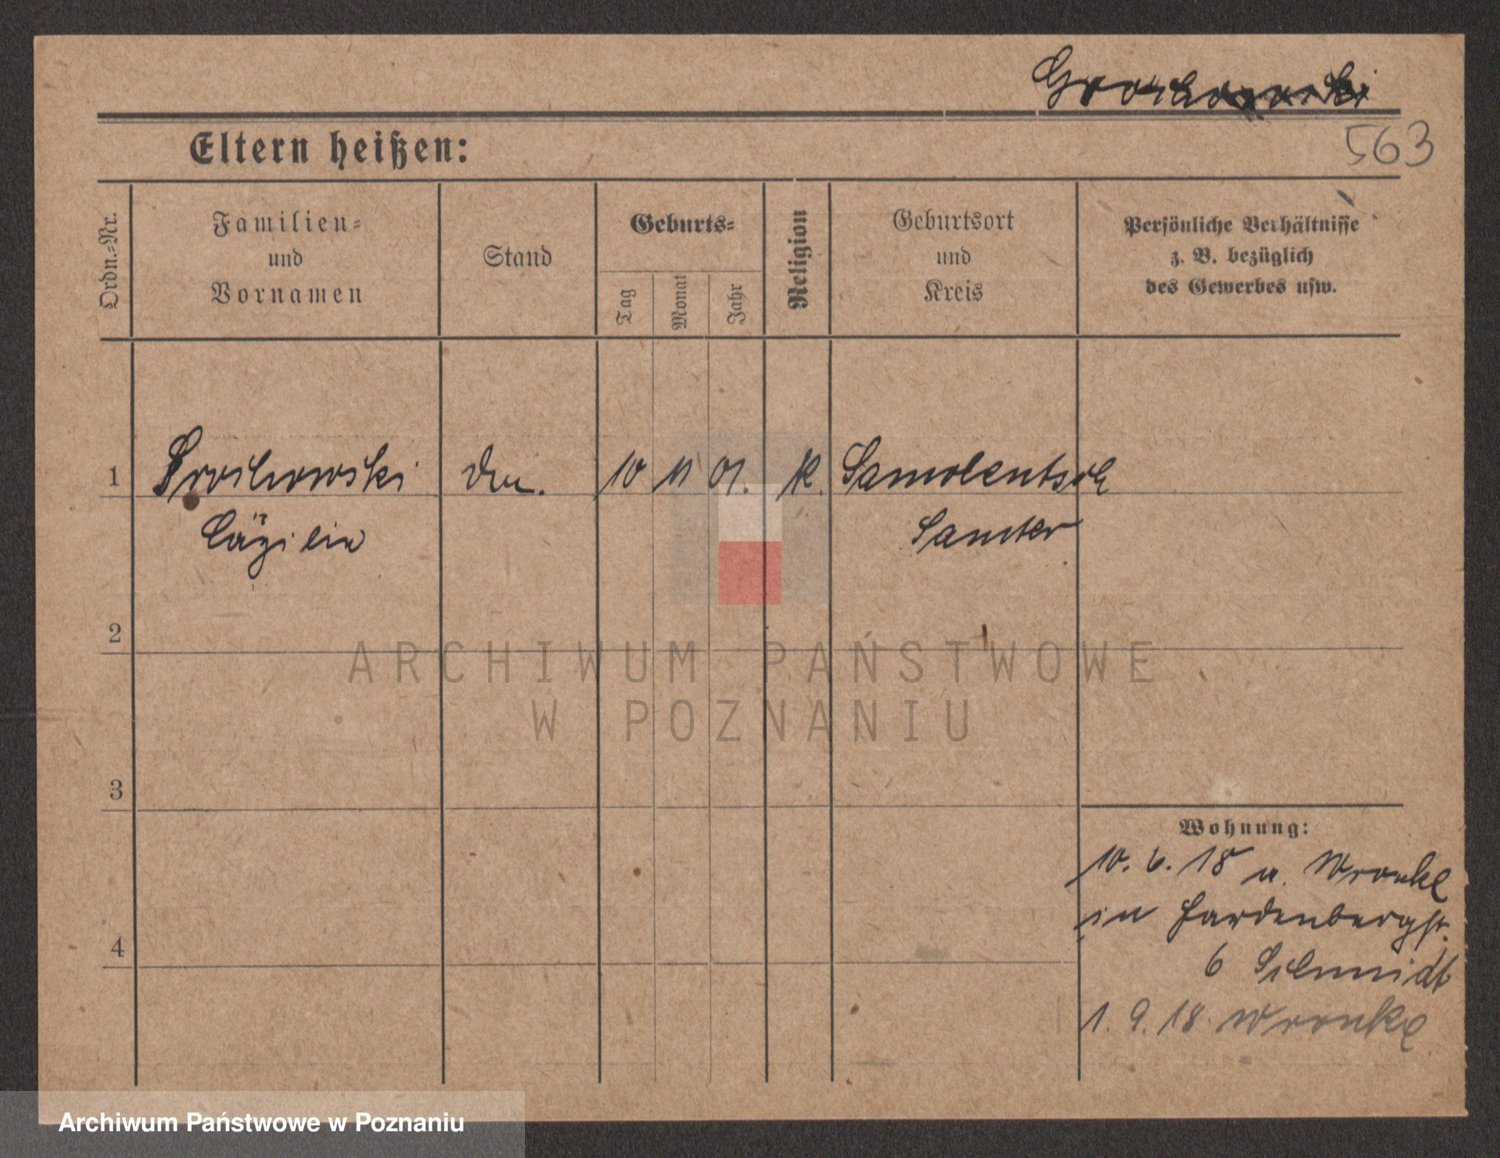 563
Eltern heißen:
Ordn.-Nr.
Familien-
und
Vornamen
Stand
Geburts-
Tag
Monat
Jahr
Religion
Geburtsort
und
Kreis
Persönliche Verhältnisse
z. B. bezüglich
des Gewerbes usw.
1 10 11 01. K. Samolentsch
Cäzilie Samter
2
ARCHIWUM PAŃSTWOWE
W POZNANIU
3
Wohnung:
10. 6. 18 a. Wronke
in Hardenbergstr.
4
6 Schmidt
1. 9. 18. Wronke
Archiwum Państwowe w Poznaniu